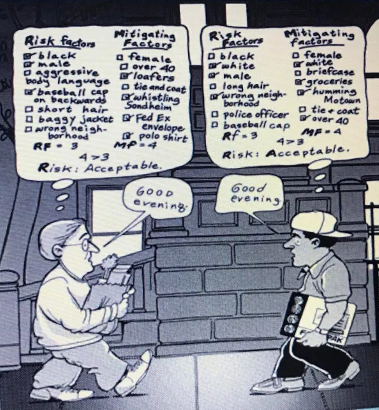 Risk factors
☑ black
☑ male
☐ aggressive
body language
☑ baseball cap
on backwards
☐ short hair
☐ baggy jacket
☐ wrong neigh-
borhood
RF = 3
Mitigating
Factors
☐ female
☐ over 40
☑ loafers
☐ tie and coat
☑ whistling
Sondheim
☑ Fed Ex
envelope
☑ polo shirt
MF = 4
4 > 3
Risk: Acceptable.
Risk
Factors
☐ black
☑ white
☑ male
☐ long hair
☑ wrong neigh-
borhood
☐ police officer
☐ baseball cap
Rf = 3
Mitigating
factors
☐ female
☑ white
☐ briefcase
☑ groceries
☑ humming
Motown
☐ tie + coat
☑ over 40
MF = 4
4 > 3
Risk: Acceptable.
GOOD
evening.
Good
evening